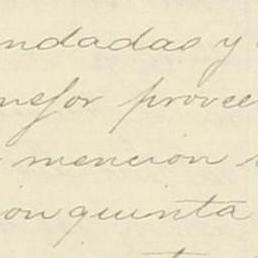 ndadas y
mejor provee
mencion
ion quinta